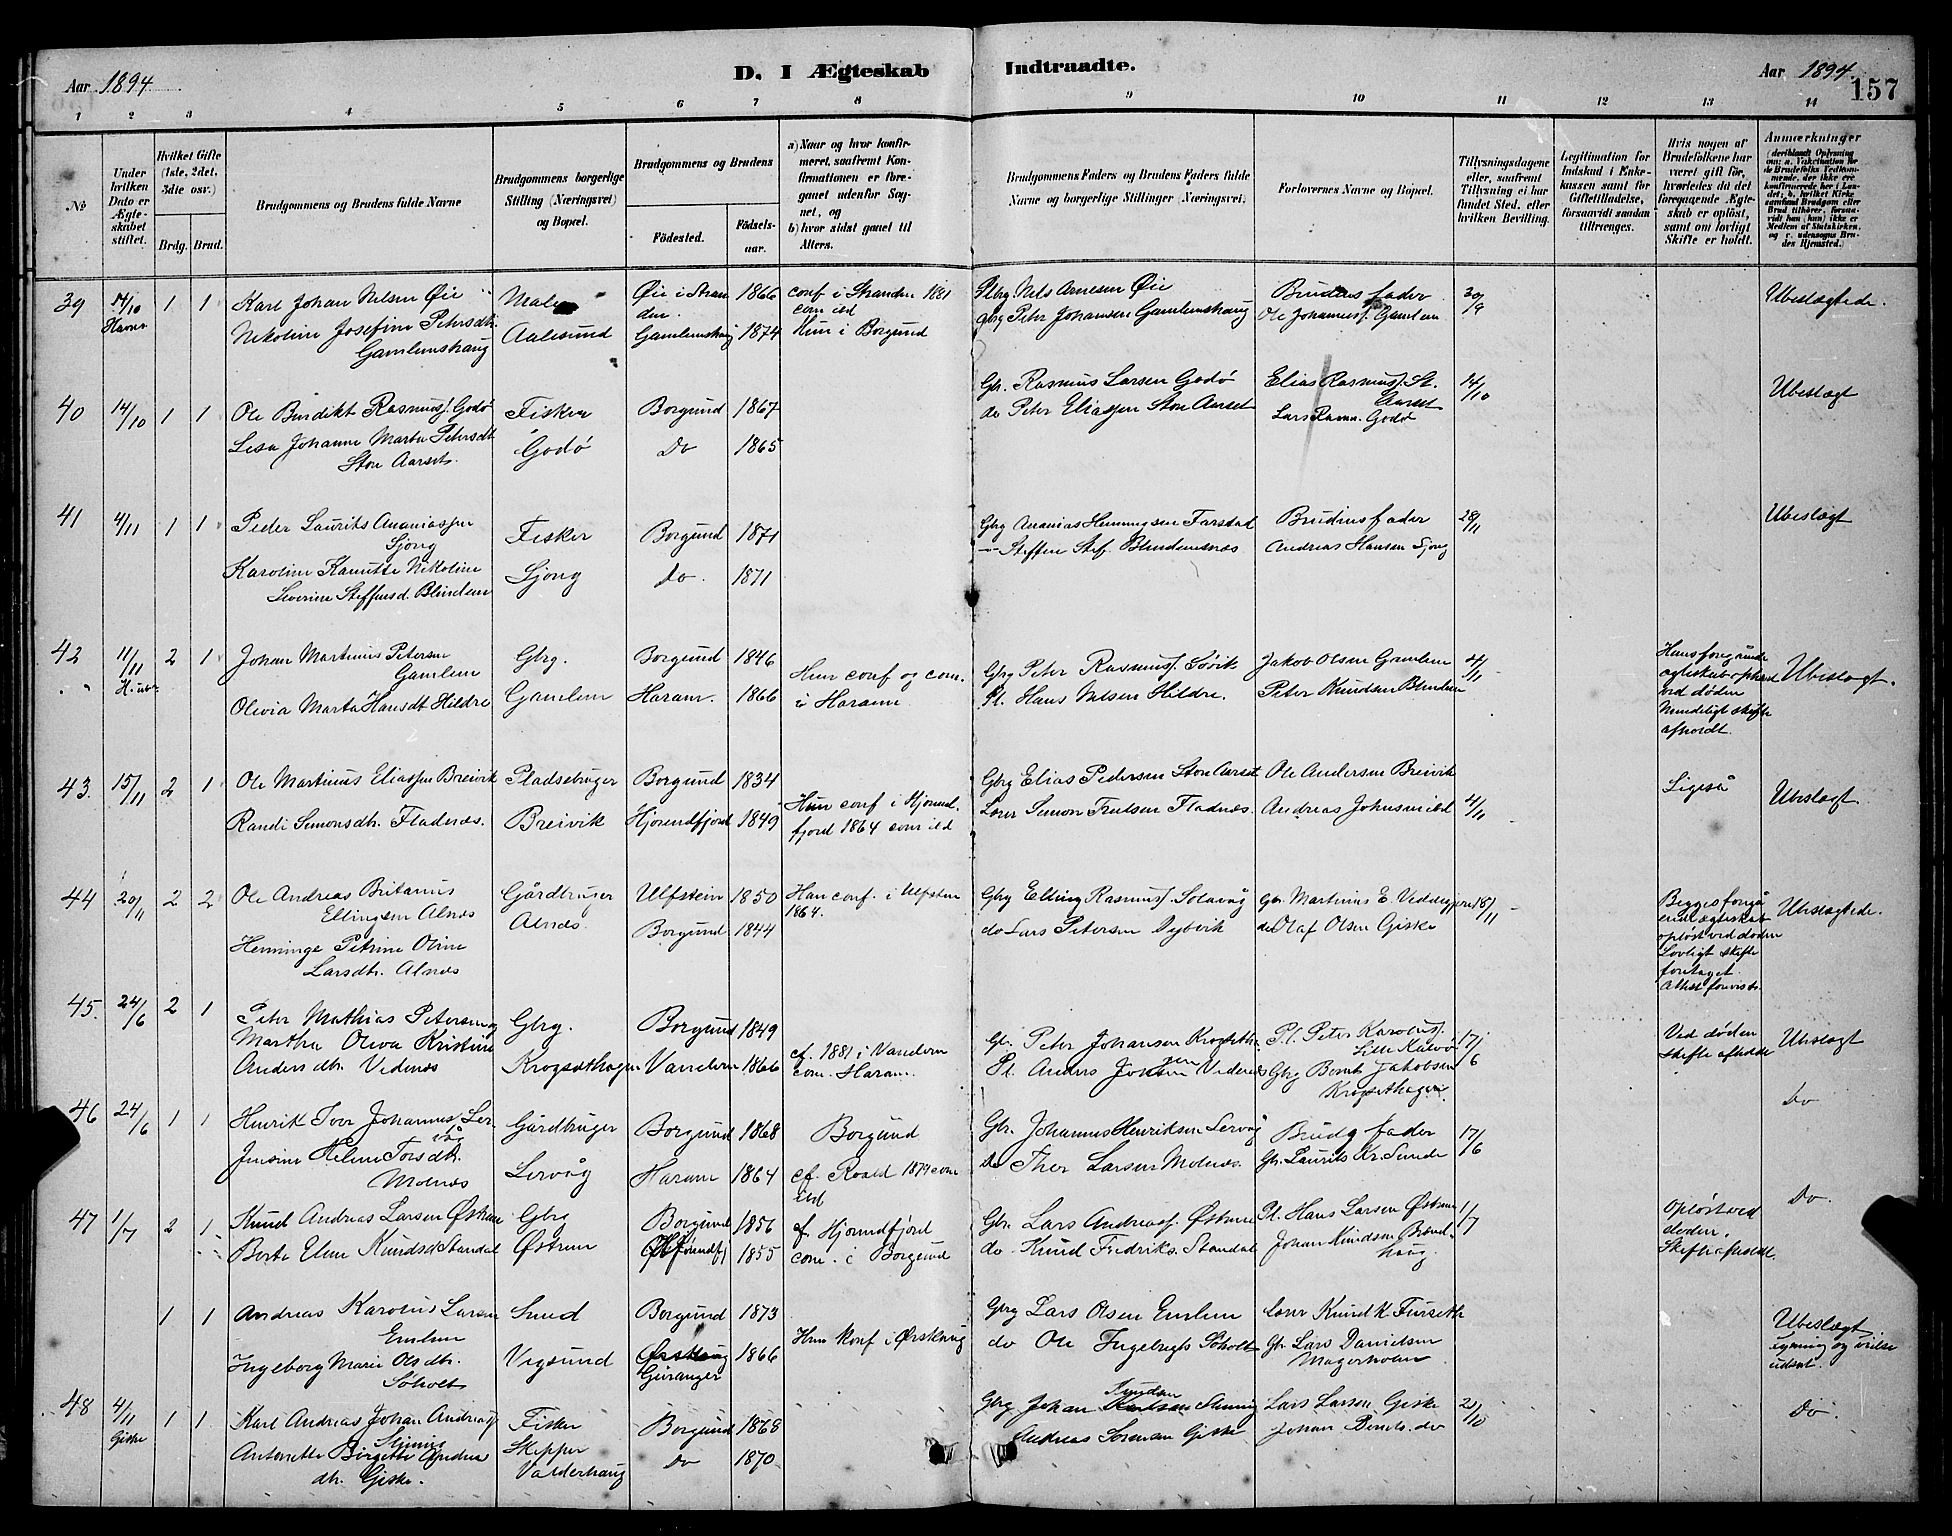 Aar 1894. D. I Ægteskab Indtraadte. Aar 1894. 157
1 2 3 4 5 6 7 8 9 10 11 12 13 14
№
Under hvilken Dato er Ægteskabet stiftet.
Hvilket Gifte (1ste, 2det, 3die osv.)
Brdg. Brud.
Brudgommens og Brudens fulde Navne
Brudgommens borgerlige Stilling (Næringsvei) og Bopæl.
Brudgommens og Brudens
Fødested. Fødselsaar.
a) Naar og hvor konfirmeret, saafremt Konfirmationen er foregaaet udenfor Sognet, og
b) hvor sidst gaaet til Alters.
Brudgommens Faders og Brudens Faders fulde Navne og borgerlige Stillinger (Næringsvei).
Forlovernes Navne og Bopæl.
Tillysningsdagene eller, saafremt Tillysning ei har fundet Sted, efter hvilken Bevilling.
Legitimation for Indskud i Enkekassen samt for Giftetilladelse, forsaavidt saadan tiltrænges.
Hvis nogen af Brudefolkene har været gift før, hvorledes da det foregaaende Ægteskab er opløst, samt om lovligt Skifte er holdt.
Anmærkninger
39 14/10 1 1 Karl Johan Nelsen Øie
Nikoline Josefine Petersdt. Gamlemshaug
Aalesund
Øie i Stranden. 1866
Gamlemshaug 1874
conf i Stranden 1881
Hun i Borgund
Plbrg Nils Arnesen Øie
Gbrg Peter Johansen Gamlemshaug
Brudens fader
Ole Johannes. Gamlem
30/9
Ubeslægtede.
40 14/10 1 1 Ole Bendikt Rasmuss. Godø
Lisa Johanne Marta Petersdt Store Aarset.
Fisker
Godø
Borgund 1867
Do 1865
Gbr. Rasmus Larsen Godø
do Peter Eliassen Store Aarset
Elias Rasmuss. St. Aarset
Lars Rasm. Godø
14/10
Ubeslægt
41 4/11 1 1 Peder Laurits Ananiassen Gjøng
Karoline Kanutte Nikoline Severine Steffensd. Blindem
Fisker
Borgund 1871
Do. 1871
Gbrg Ananias Henningsen Farstad
— Steffen Stef. Blindemsnæs
Brudens fader
Andreas Hansen
28/11
Ubeslægt
42 11/11 2 1 Johan Martinus Petersen Gamlem
Olivia Marta Hansdt Hildre
Gbrg.
Gamlem
Borgund 1846
Haram. 1866
Hun conf og com. i Haram.
Gbrg Peter Rasmuss. Søvik
Pl. Hans Nelsen Hildre.
Jakob Olsen Gamlem
Peter Knudsen Blindem
4/11
Hans foregående ægteskab ophævd ved døden Mundtligt skifte afholdt.
Ubeslægt.
43. 15/11 2 1 Ole Martinus Eliassen Breivik
Randi Simonsdtr. Fladnæs.
Pladsebruger
Breivik
Borgund 1834
Hjørendfjord 1849
Hun conf i Hjørundfjord 1864
Gbrg Elias Pedersen Store Aarset
Simon Trulsen Fladnæs.
Ole Andersen Breivik
4/11
Ligeså
Ubeslægt
44 20/11 2 2 Ole Andreas Britanus Ellingsen Alnæs
Henninge Petrine Oline Larsdtr. Alnæs
Gårdbruger
Alnæs.
Ulfstein 1850
Borgund 1844
Han conf. i Ulfsten 1864.
Gbrg Elling Rasmuss. Solavåg
do Lars Petersen Dybvik
Gbr. Martinus E. Veddegjerde
do Olaf Olsen Giske
18/11
Begges foregående ægteskab opløst ved døden Lovligt skifte foretaget. Attest forevist.
Ubeslægtede.
45. 24/6 2 1 Peter Mathias Petersen og
Martha Oliva Kristine Andersdtr. Vedenæs
Gbrg.
Krogsæthagen
Borgund 1849
Vandern 1866
cf. 1881 i Vanelven com. Haram.
Gb. Peter Johansen Krogsæth.
Pl. Anders Jonsen Vedenæs
Pl. Peter Karolus. Lille Kalvø
Gbrg Bernt Jakobsen Krogsethagen.
17/6
Ved døden skifte afholdt
Ubeslægt
46 24/6 1 1 Henrik Iver Johannes. Lervåg
Jensine Helene Torsdtr. Molnæs
Gårdbruger
Lervåg
Borgund 1868
Haram 1864
Borgund
cf. Roald 1879 com
Gbr. Johannes Henriksen Lervåg
do Thor Larsen Molnæs.
Brudg fader
Gb. Laurits Kr. Sunde
17/6
Do
47 1/7 2 1 Knud Andreas Larsen Østrem
Berte Eline Knudsdt Standal
Gbrg
Østrem
Borgund 1856
1855
cf. Hjørundfjord
com. i Borgund
Gbr. Lars Andreass. Østrem
do Knud Fredriks. Standal
Pl. Hans Larsen Østrem
Johan Knudsen Brendhaug.
1/7
Opløst ved døden. Skifte afholdt.
Do.
1 1 Andreas Karolus Larsen Emlem
Ingeborg Marie Olsdtr. Søholt
Smed
Vegsund
Borgund 1873
Ørskoug Geiranger 1866
Hun konf i Ørskoug
Gbrg Lars Olsen Emlem
do Ole Ingebrigts Søholt
Knud K Furseth
Gb. Lars Danielsen Magerholm
Ubeslægt
Lysning og vielse udsat.
48 4/11 Giske 1 1 Karl Andreas Johan Andreas
Antonette Birgette Andreadtr. Giske.
Fisker
Skipper
Valderhaug
Borgund 1868
Do 1870
Gbrg Johan Knudsen
Andreas Sørensen Giske
Lars Larsen Giske
Johan Bernts. do
21/10
Do.